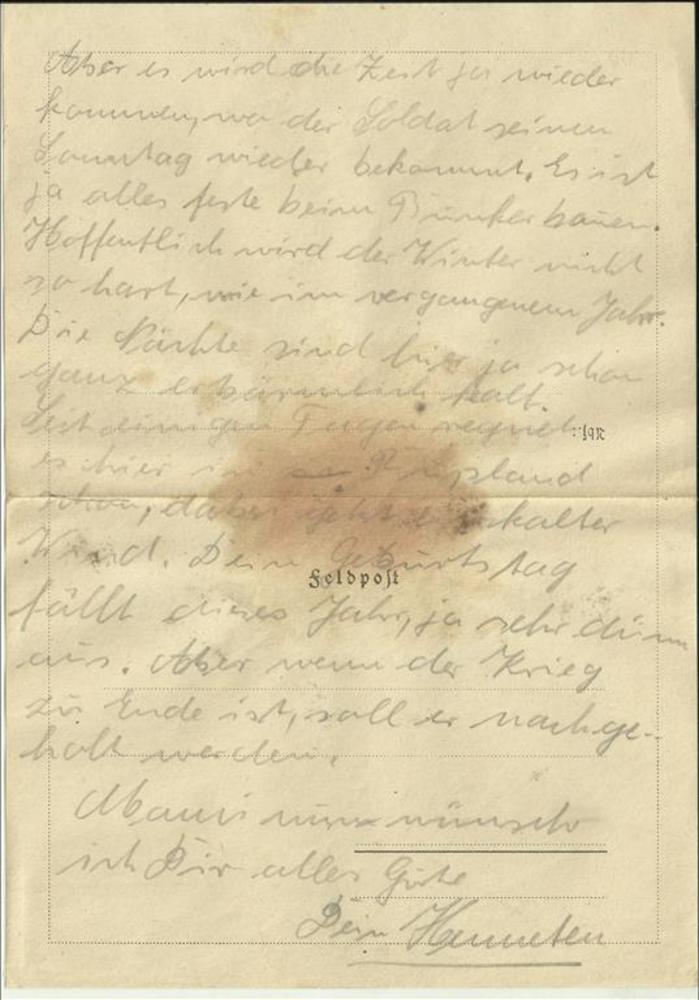 Aber es wird die Zeit ja wieder
kommen, wo der Soldat seinen
Sonntag wieder bekommt. Es ist
ja alles feste beim Bunkerbauen.
Hoffentlich wird der Winter nicht
so hart, wie im vergangenem Jahr.
Die Nächte sind hier ja schon
ganz erbärmlich kalt.
Seit einigen Tagen regnet
:
es hier in Rußland
schon, dabei geht ein kalter
Wind. Dein Geburtstag
Feldpost
fällt dieses Jahr, ja sehr dünn
aus. Aber wenn der Krieg
zu Ende ist, soll er nachge-
holt werden.
nun wünsche
ich Dir alles Gute
Dein